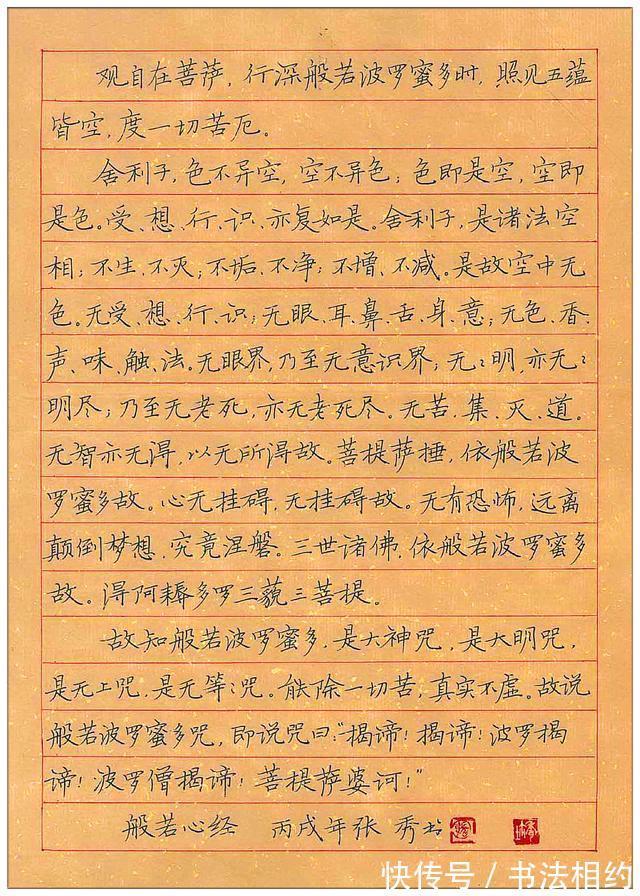 观自在菩萨，行深般若波罗蜜多时，照见五蕴
皆空，度一切苦厄。
舍利子，色不异空，空不异色；色即是空，空即
是色。受、想、行、识、亦复如是。舍利子，是诸法空
相；不生、不灭；不垢、不净；不增、不减。是故空中无
色。无受、想、行、识；无眼、耳、鼻、舌、身、意；无色、香、
声、味、触、法。无眼界，乃至无意识界；无〻明，亦无〻
明尽；乃至无老死，亦无老死尽。无苦、集、灭、道。
无智亦无得，以无所得故。菩提萨捶，依般若波
罗蜜多故。心无挂碍，无挂碍故。无有恐怖，远离
颠倒梦想，究竟涅磐。三世诸佛，依般若波罗蜜多
故。得阿耨多罗三藐三菩提。
故知般若波罗蜜多，是大神咒，是大明咒，
是无上咒，是无等〻咒。能除一切苦，真实不虚。故说
般若波罗蜜多咒，即说咒曰：“揭谛！揭谛！波罗揭
谛！波罗僧揭谛！菩提萨婆诃！”
般若心经 丙戌年张秀书
快传号 / 书法相约